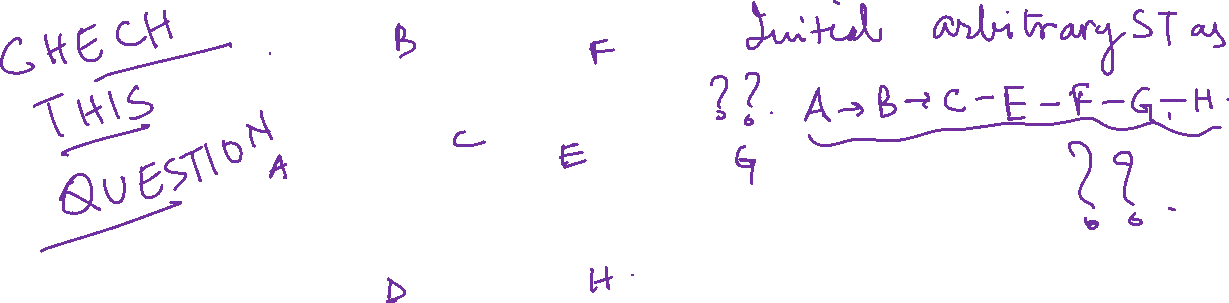 CHECH
THIS
QUESTION
B F
C E
A G
D H.
Initial arbitrary ST as
?? A → B → C - E - F - G - H.
??